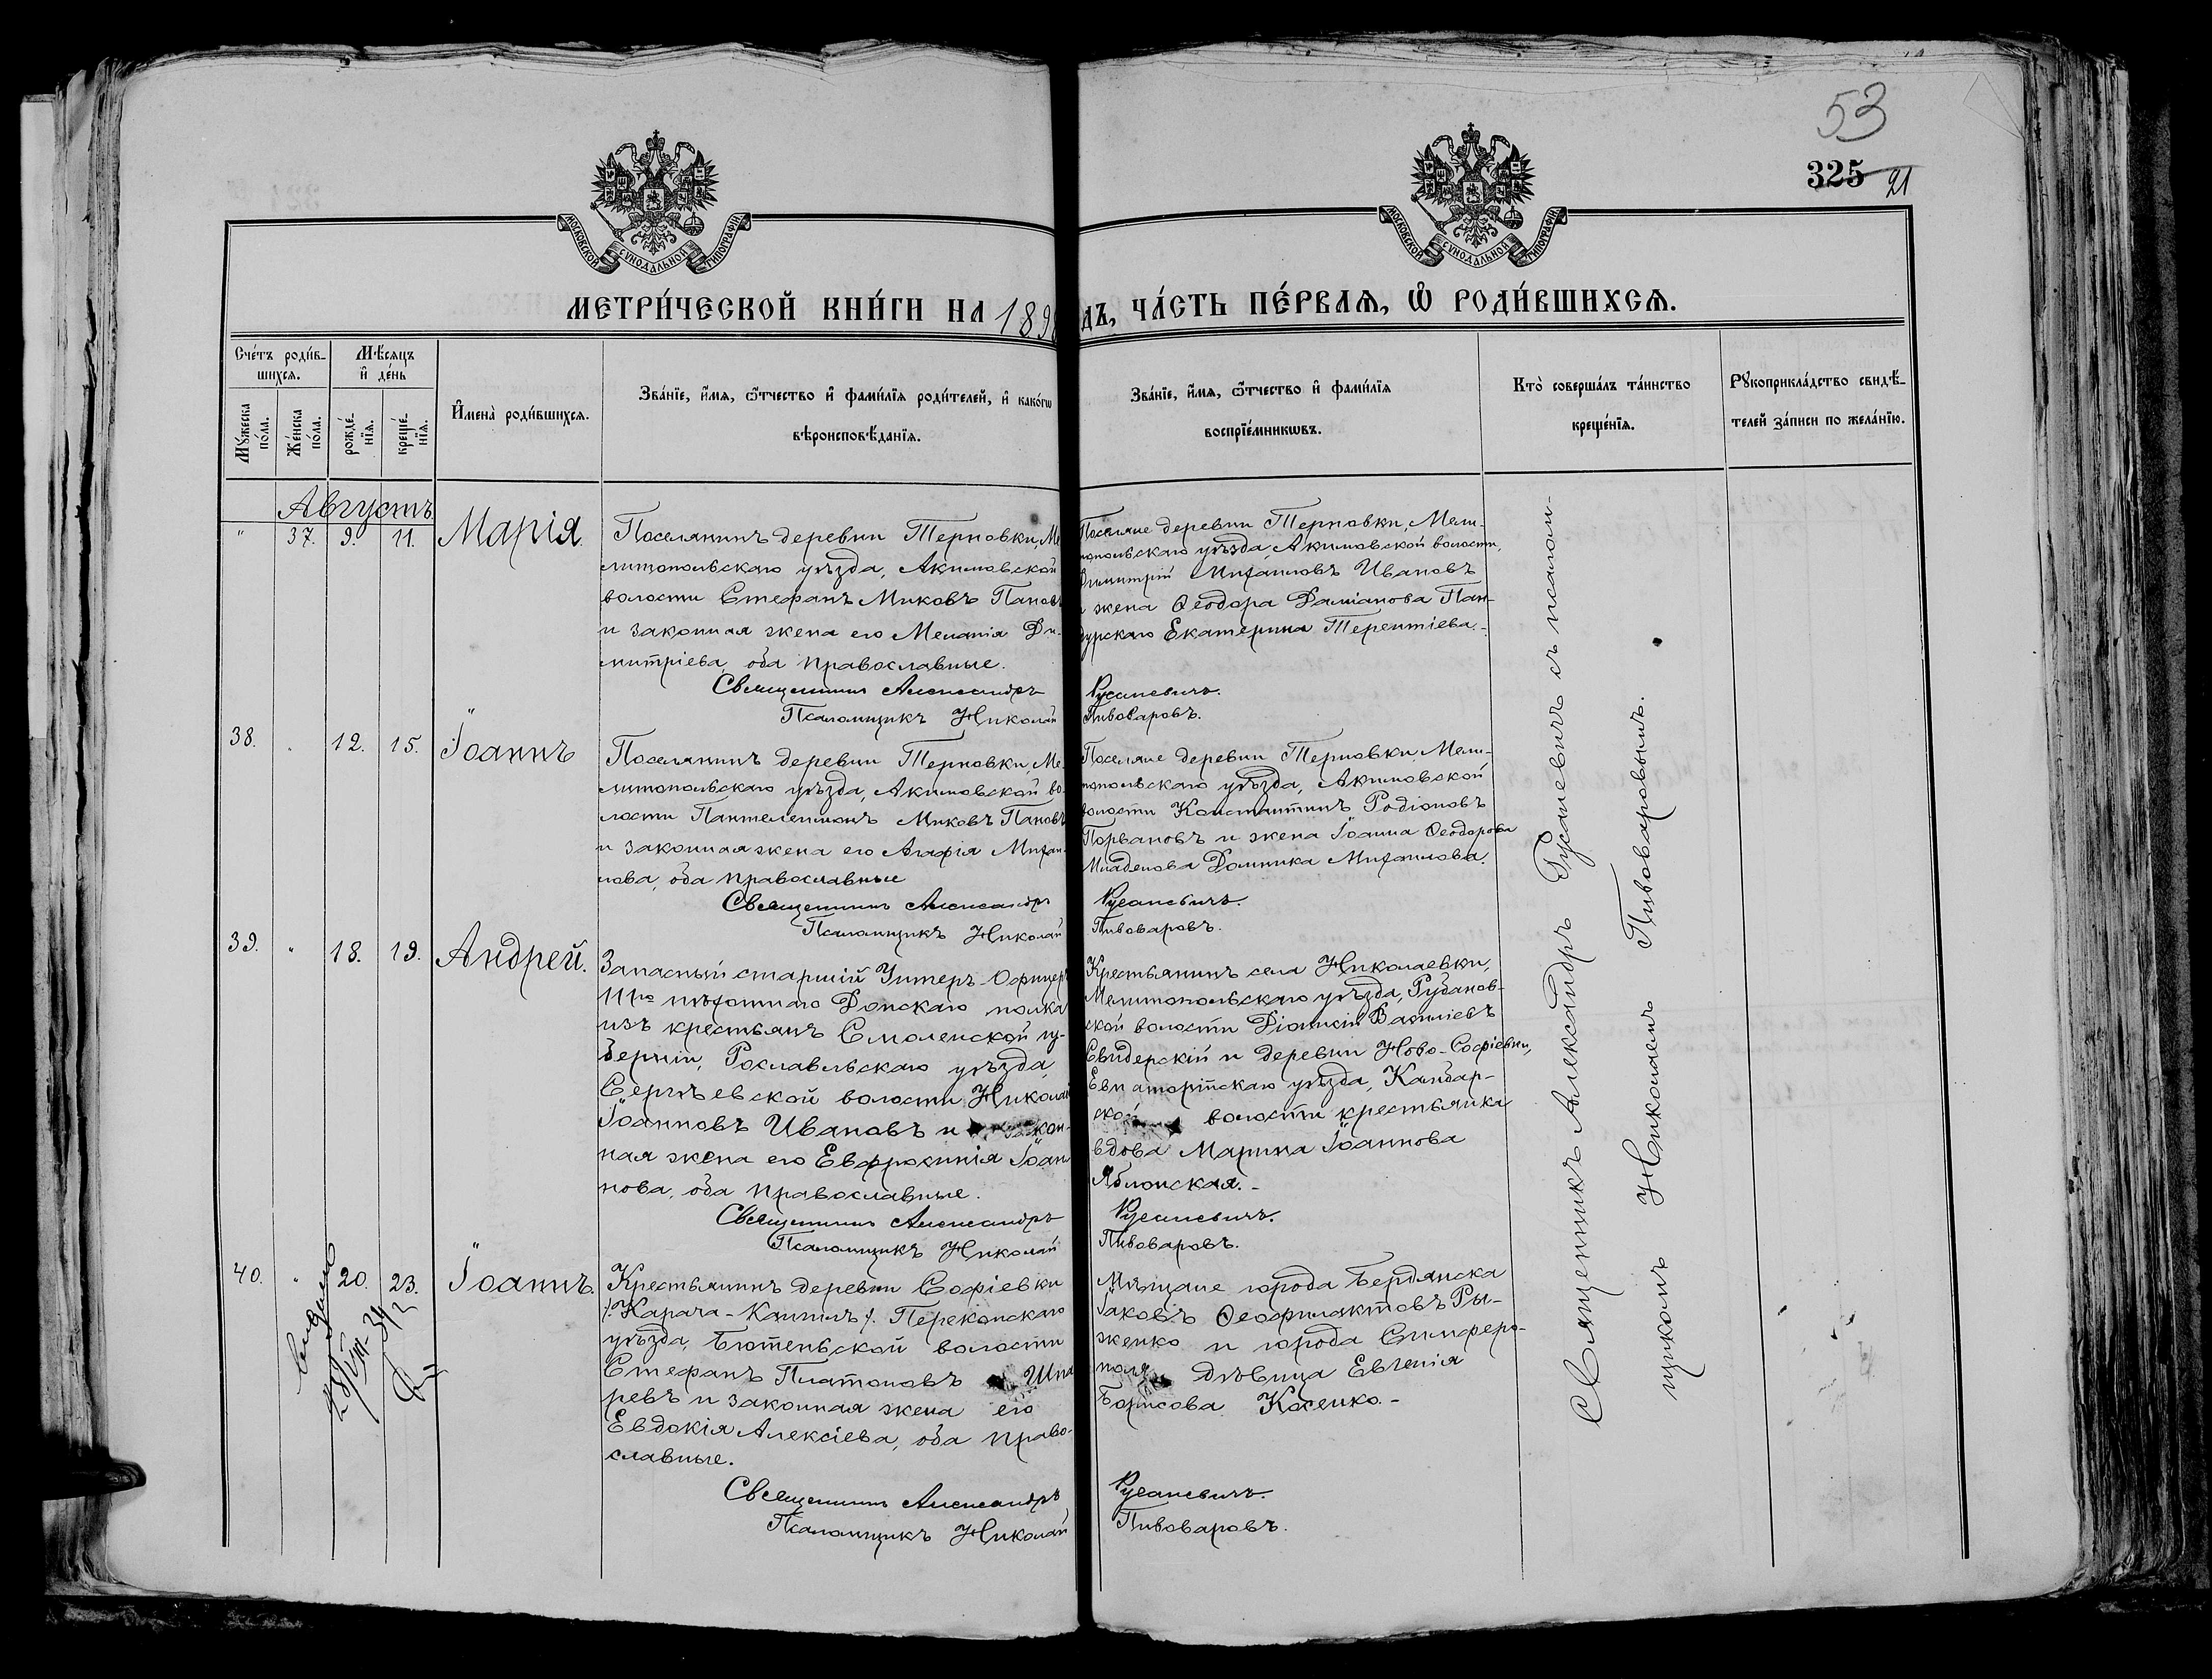 53
325 21
МОСКОВСКОЙ СѴНОДАЛЬНОЙ ТИПОГРАФІИ
МОСКОВСКОЙ СѴНОДАЛЬНОЙ ТИПОГРАФІИ
МЕТРИ́ЧЕСКОЙ КНИ́ГИ НА 189
ДЪ, ЧА́СТЬ ПЕ́РВАѦ, Ѡ҆ РОДИ́ВШИХСѦ.
Сче́тъ роди́в-
шихсѧ.
Мѣ́сѧцъ
и҆ де́нь
Мꙋ́жеска по́ла.
Же́нска по́ла.
рожде́нїѧ.
креще́нїѧ.
И҆мена̀ роди́вшихсѧ.
Зва́нїе, и҆́мѧ, ѻ҆́тчество и҆ фами́лїѧ роди́телей, и҆ како́гѡ
вѣроисповѣ́данїѧ.
Зва́нїе, и҆́мѧ, ѻ҆́тчество и҆ фами́лїѧ
воспрїе́мникѡвъ.
Кто̀ соверша́лъ та́инство
креще́нїѧ.
Рꙋкоприкла́дство свидѣ́-
телей за́писи по жела́нїю.
Августъ
" 37. 9. 11. Марія.
Поселянинъ деревни Терновки, Ме-
литопольскаго уѣзда, Акимовской
волости Стефанъ Миковъ Пановъ
и законная жена его Меланія Ди-
митріева, оба православные.
Священникъ Александръ
Псаломщикъ Николай
Поселяне деревни Терновки, Мели-
топольскаго уѣзда, Акимовской волости,
Димитрій Михаиловъ Ивановъ
и жена Ѳеодора Даміанова Пан-
дурскаго Екатерина Терентіева.-
Русаневичъ.
Пивоваровъ.
38. " 12. 15. Іоаннъ
Поселянинъ деревни Терновки, Ме-
литопольскаго уѣзда, Акимовской во-
лости Пантелеимонъ Миковъ Пановъ
и законная жена его Агафія Михаи-
лова, оба православные
Священникъ Александръ
Псаломщикъ Николай
Поселяне деревни Терновки, Мели-
топольскаго уѣзда, Акимовской
волости Константинъ Родіоновъ
Порвановъ и жена Іоанна Ѳеодорова
Младенова Домника Михаилова.
Русаневичъ.
Пивоваровъ.
39. " 18. 19. Андрей.
Запасный старшій Унтеръ-Офицеръ
111го пѣхотнаго Донскаго полка
изъ крестьянъ Смоленской гу-
берніи, Рославльскаго уѣзда,
Сергѣевской волости Николай
Іоанновъ Ивановъ и закон-
ная жена его Евфросинія Іоан-
нова, оба православные.
Священникъ Александръ
Псаломщикъ Николай
Крестьянинъ села Николаевки,
Мелитопольскаго уѣзда, Рубанов-
ской волости Діонисій Василіевъ
Свидерскій и деревни Ново-Софіевки,
Евпаторійскаго уѣзда, Камбар-
ской волости крестьянка
вдова Марина Іоаннова
Яблонская.-
Русаневичъ.
Пивоваровъ.
40. " 20. 23. Іоаннъ.
Крестьянинъ деревни Софіевки
/:Карача-Кангилъ:/ Перекопскаго
уѣзда, Бютеньской волости
Стефанъ Платоновъ Шпа
ревъ и законная жена его
Евдокія Алексіева, оба право-
славные.
Священникъ Александръ
Псаломщикъ Николай
Мѣщане города Бердянска
Іаковъ Ѳеофилактовъ Ры-
женко и города Симферо-
поля дѣвица Евгенія
Борисова Косенко.-
Русаневичъ.
Пивоваровъ.
Священникъ Александръ Русаневичъ съ псалом-
щикомъ Николаемъ Пивоваровымъ.